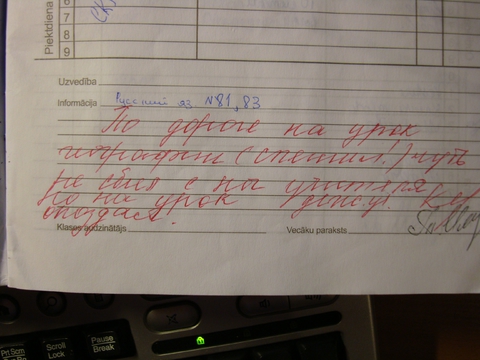 Piektdiena
6
7
8
9
Uzvedība
Informācija Русский яз №81, 83
По дороге на урок
географии (спешил!) чуть
не сбил с ног учителя,
но на урок
опоздал.
Klases audzinātājs
Vecāku paraksts
Prt Scrn
Scroll
Lock
Pause
Break